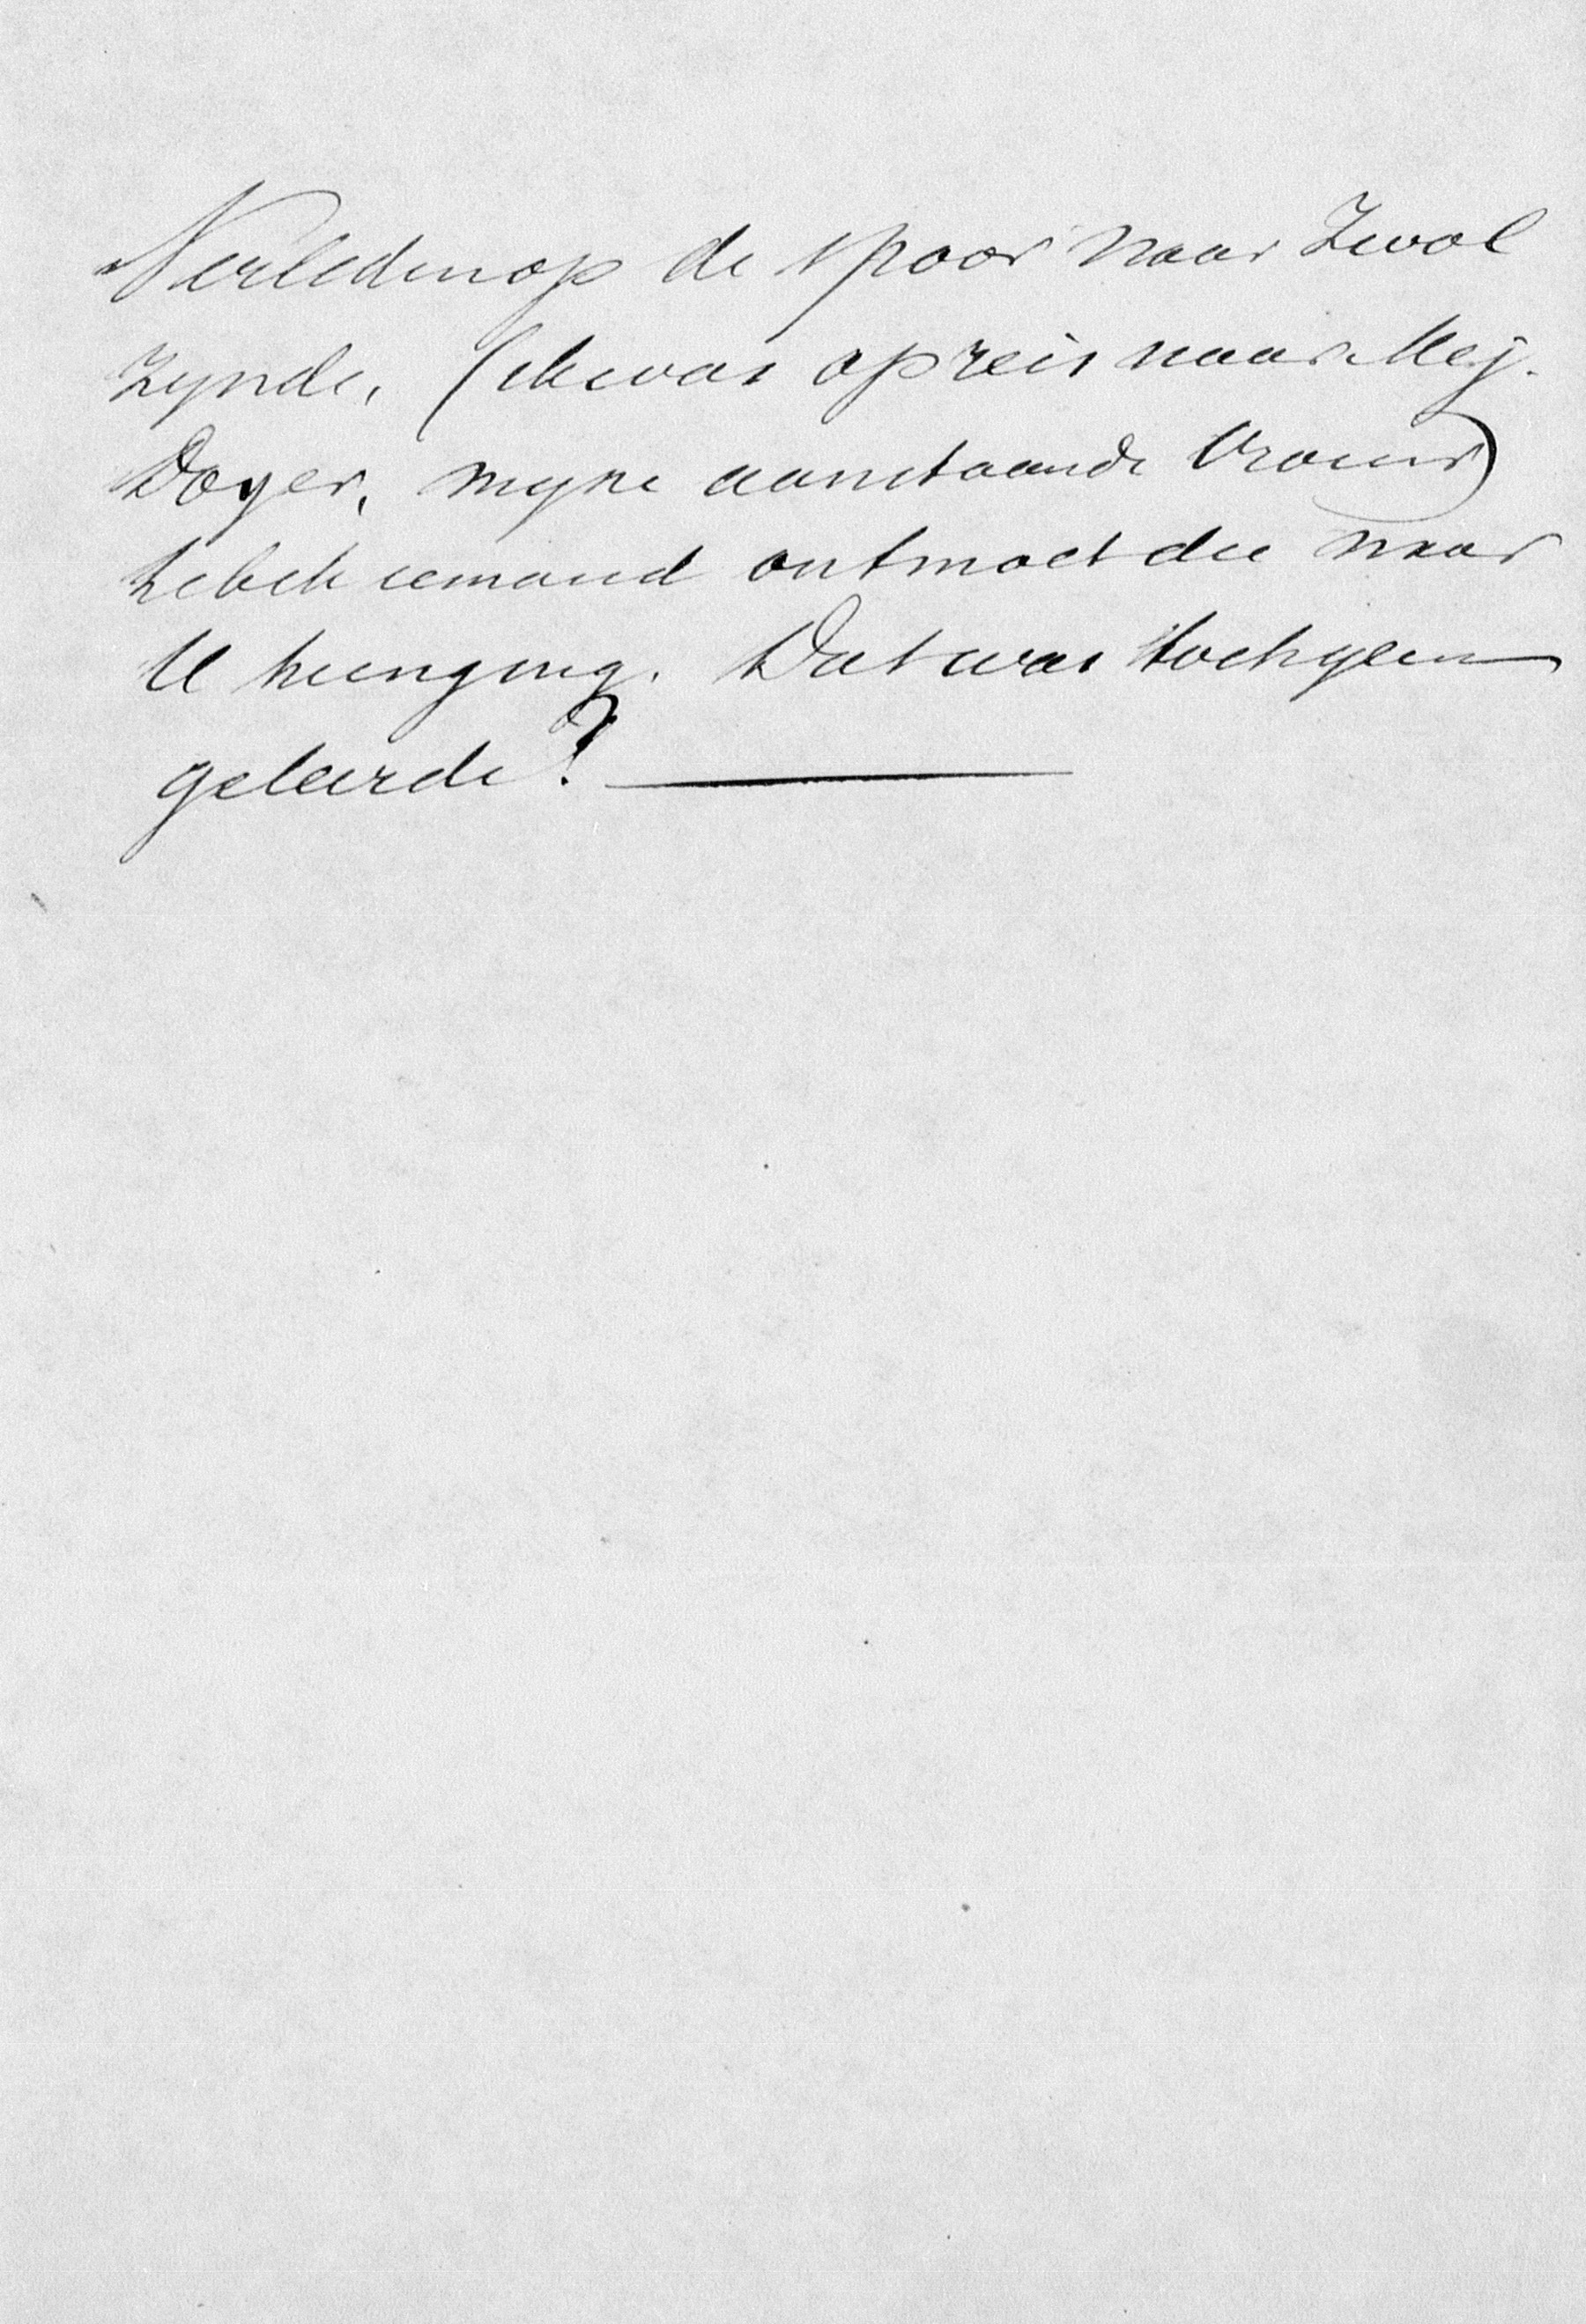 Verleden op de spoor naar Zwol
zynde, (ik was op reis naar Mej.
Doyer, myne aanstaande Vrouw)
heb ik iemand ontmoet die naar
U heenging. Dat was toch geen
geleerde?